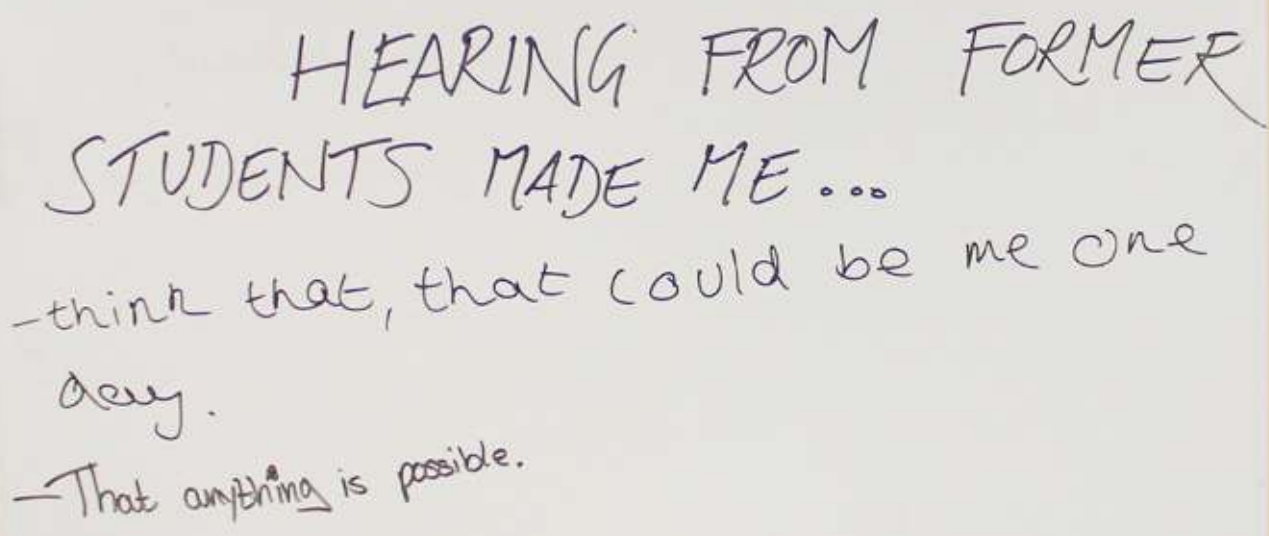 HEARING FROM FORMER
STUDENTS MADE ME...
-think that, that could be me one
day.
-That anything is possible.